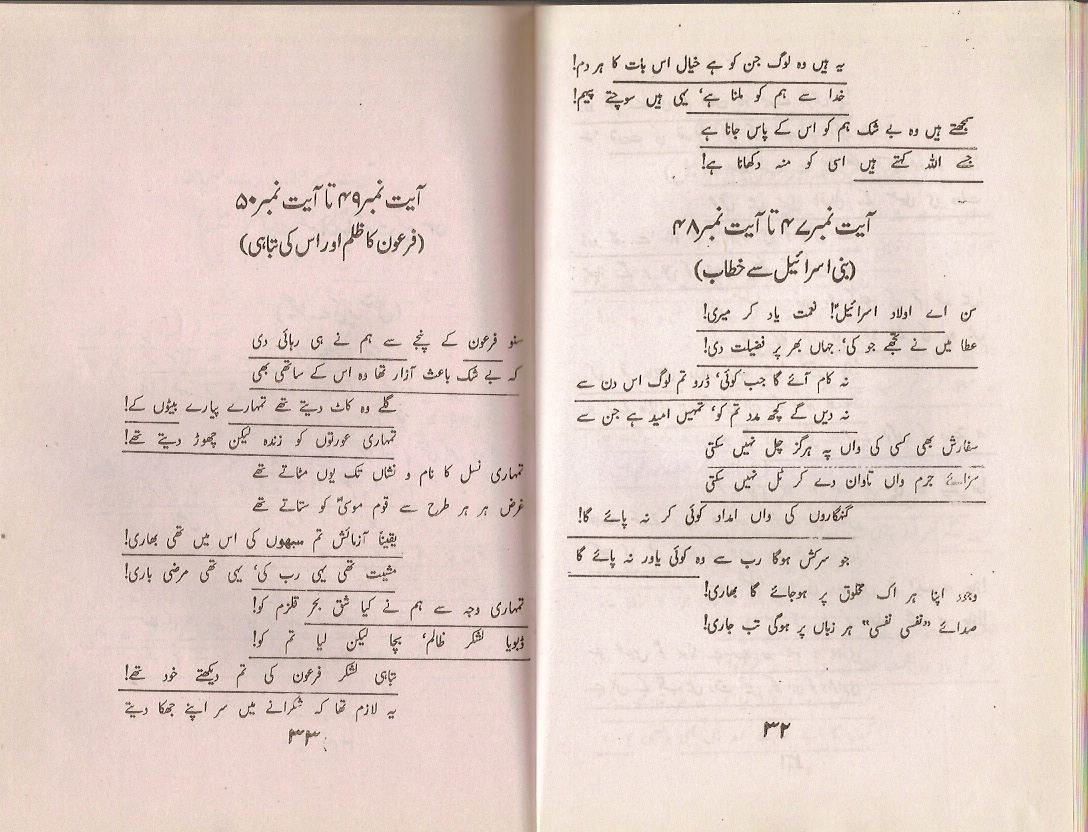 یہ ہیں وہ لوگ جن کو ہے خیال اس بات کا ہر دم!
خدا سے ہم کو ملنا ہے‘ یہی ہیں سوچتے پیہم!
سمجھتے ہیں وہ بے شک ہم کو اس کے پاس جانا ہے
جسے اللہ کہتے ہیں اسی کو منہ دکھانا ہے!
آیت نمبر ۴۷ تا آیت نمبر ۴۸
(بنی اسرائیل سے خطاب)
سن اے اولاد اسرائیلؑ! نعمت یاد کر میری!
عطا میں نے تجھے جو کی‘ جہاں بھر پر فضیلت دی!
نہ کام آئے گا جب کوئی‘ ڈرو تم لوگ اس دن سے
نہ دیں گے کچھ مدد تم کو‘ تمہیں امید ہے جن سے
سفارش بھی کسی کی واں پہ ہرگز چل نہیں سکتی
سزائے جرم واں تاوان دے کر ٹل نہیں سکتی
گنہگاروں کی واں امداد کوئی کر نہ پائے گا!
جو سرکش ہوگا رب سے وہ کوئی یاور نہ پائے گا
وجود اپنا ہر اک مخلوق پر ہوجائے گا بھاری!
صدائے ”نفسی نفسی“ ہر زباں پر ہوگی تب جاری!
۳۲
آیت نمبر ۴۹ تا آیت نمبر ۵۰
(فرعون کا ظلم اور اس کی تباہی)
سنو فرعون کے پنجے سے ہم نے ہی رہائی دی
کہ بے شک باعث آزار تھا وہ اس کے ساتھی بھی
گلے وہ کاٹ دیتے تھے تمہارے پیارے بیٹوں کے!
تمہاری عورتوں کو زندہ لیکن چھوڑ دیتے تھے!
تمہاری نسل کا نام و نشاں تک یوں مٹاتے تھے
غرض ہر ہر طرح سے قوم موسیٰؑ کو ستاتے تھے
یقیناً آزمائش تم سبھوں کی اس میں تھی بھاری!
مشیت تھی یہی رب کی‘ یہی تھی مرضی باری!
تمہاری وجہ سے ہم نے کیا شق بحر قلزم کو!
ڈبویا لشکر ظالم‘ بچا لیکن لیا تم کو!
تباہی لشکر فرعون کی تم دیکھتے خود تھے!
یہ لازم تھا کہ شکرانے میں سر اپنے جھکا دیتے
۳۳